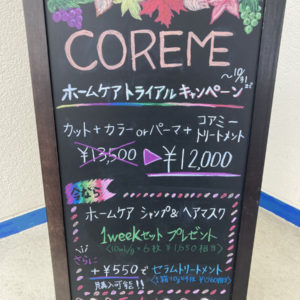 COREME
～10/31まで
ホームケアトライアルキャンペーン
カット+カラーorパーマ+コアミートリートメント
¥13,500 ▶ ¥12,000
今なら
ホームケア シャンプ&ヘアマスク
1weekセット プレゼント
さらに
+¥550で セラムトリートメント
購入可能!!